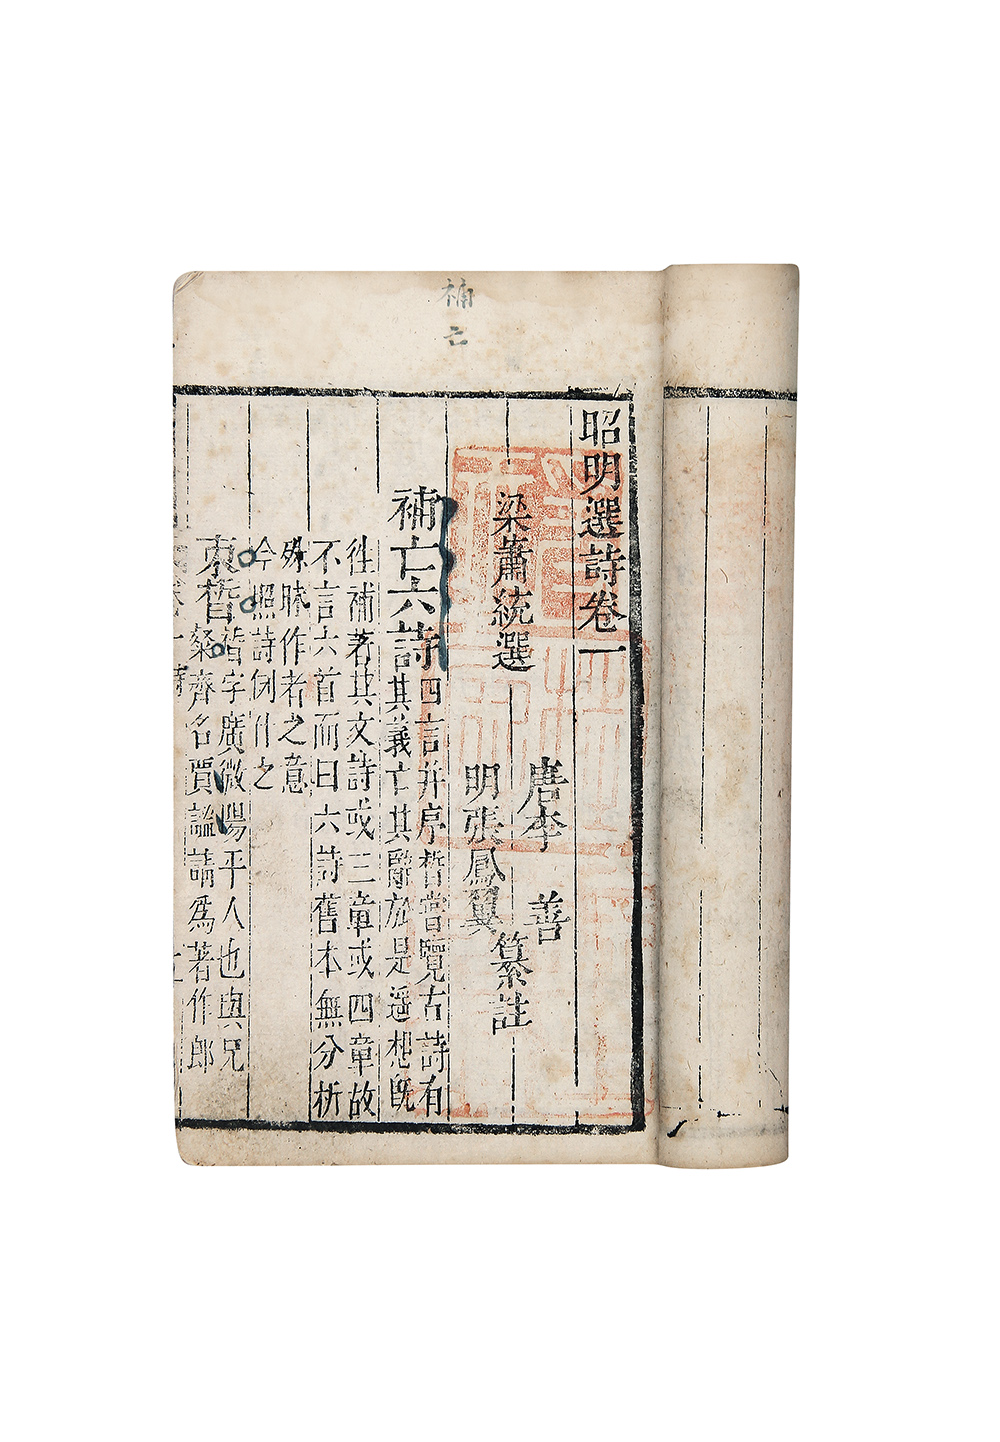 補亡
昭明選詩卷一
梁蕭統選
唐李 善
明張鳳翼
纂註
補亡六詩
四言并序皙嘗覽古詩有
其義亡其辭於是遥想旣
徃補著其文詩或三章或四章故
不言六首而曰六詩舊本無分析
殊昧作者之意
今照詩例什之
束皙
皙字廣微陽平人也與兄
粲齊名賈謐請爲著作郎